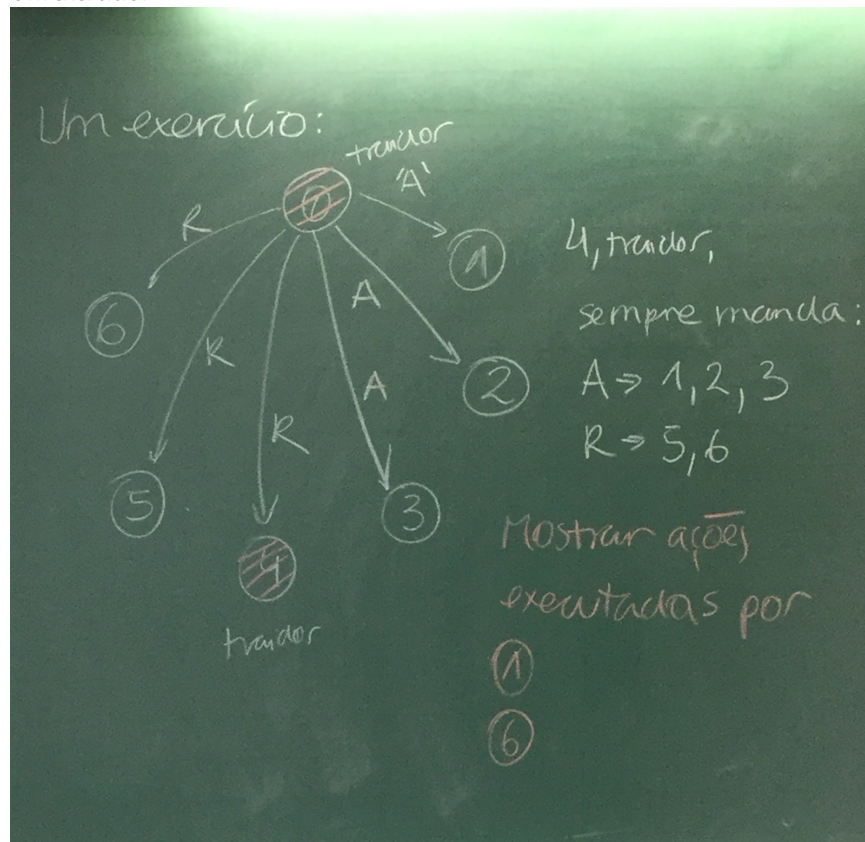 Um exercício:
traidor
'A'
R
0
1
6
R
A
2
R
A
5
3
4
traidor
4, traidor,
sempre manda:
A ⇒ 1, 2, 3
R ⇒ 5, 6
Mostrar ações
executadas por
1
6